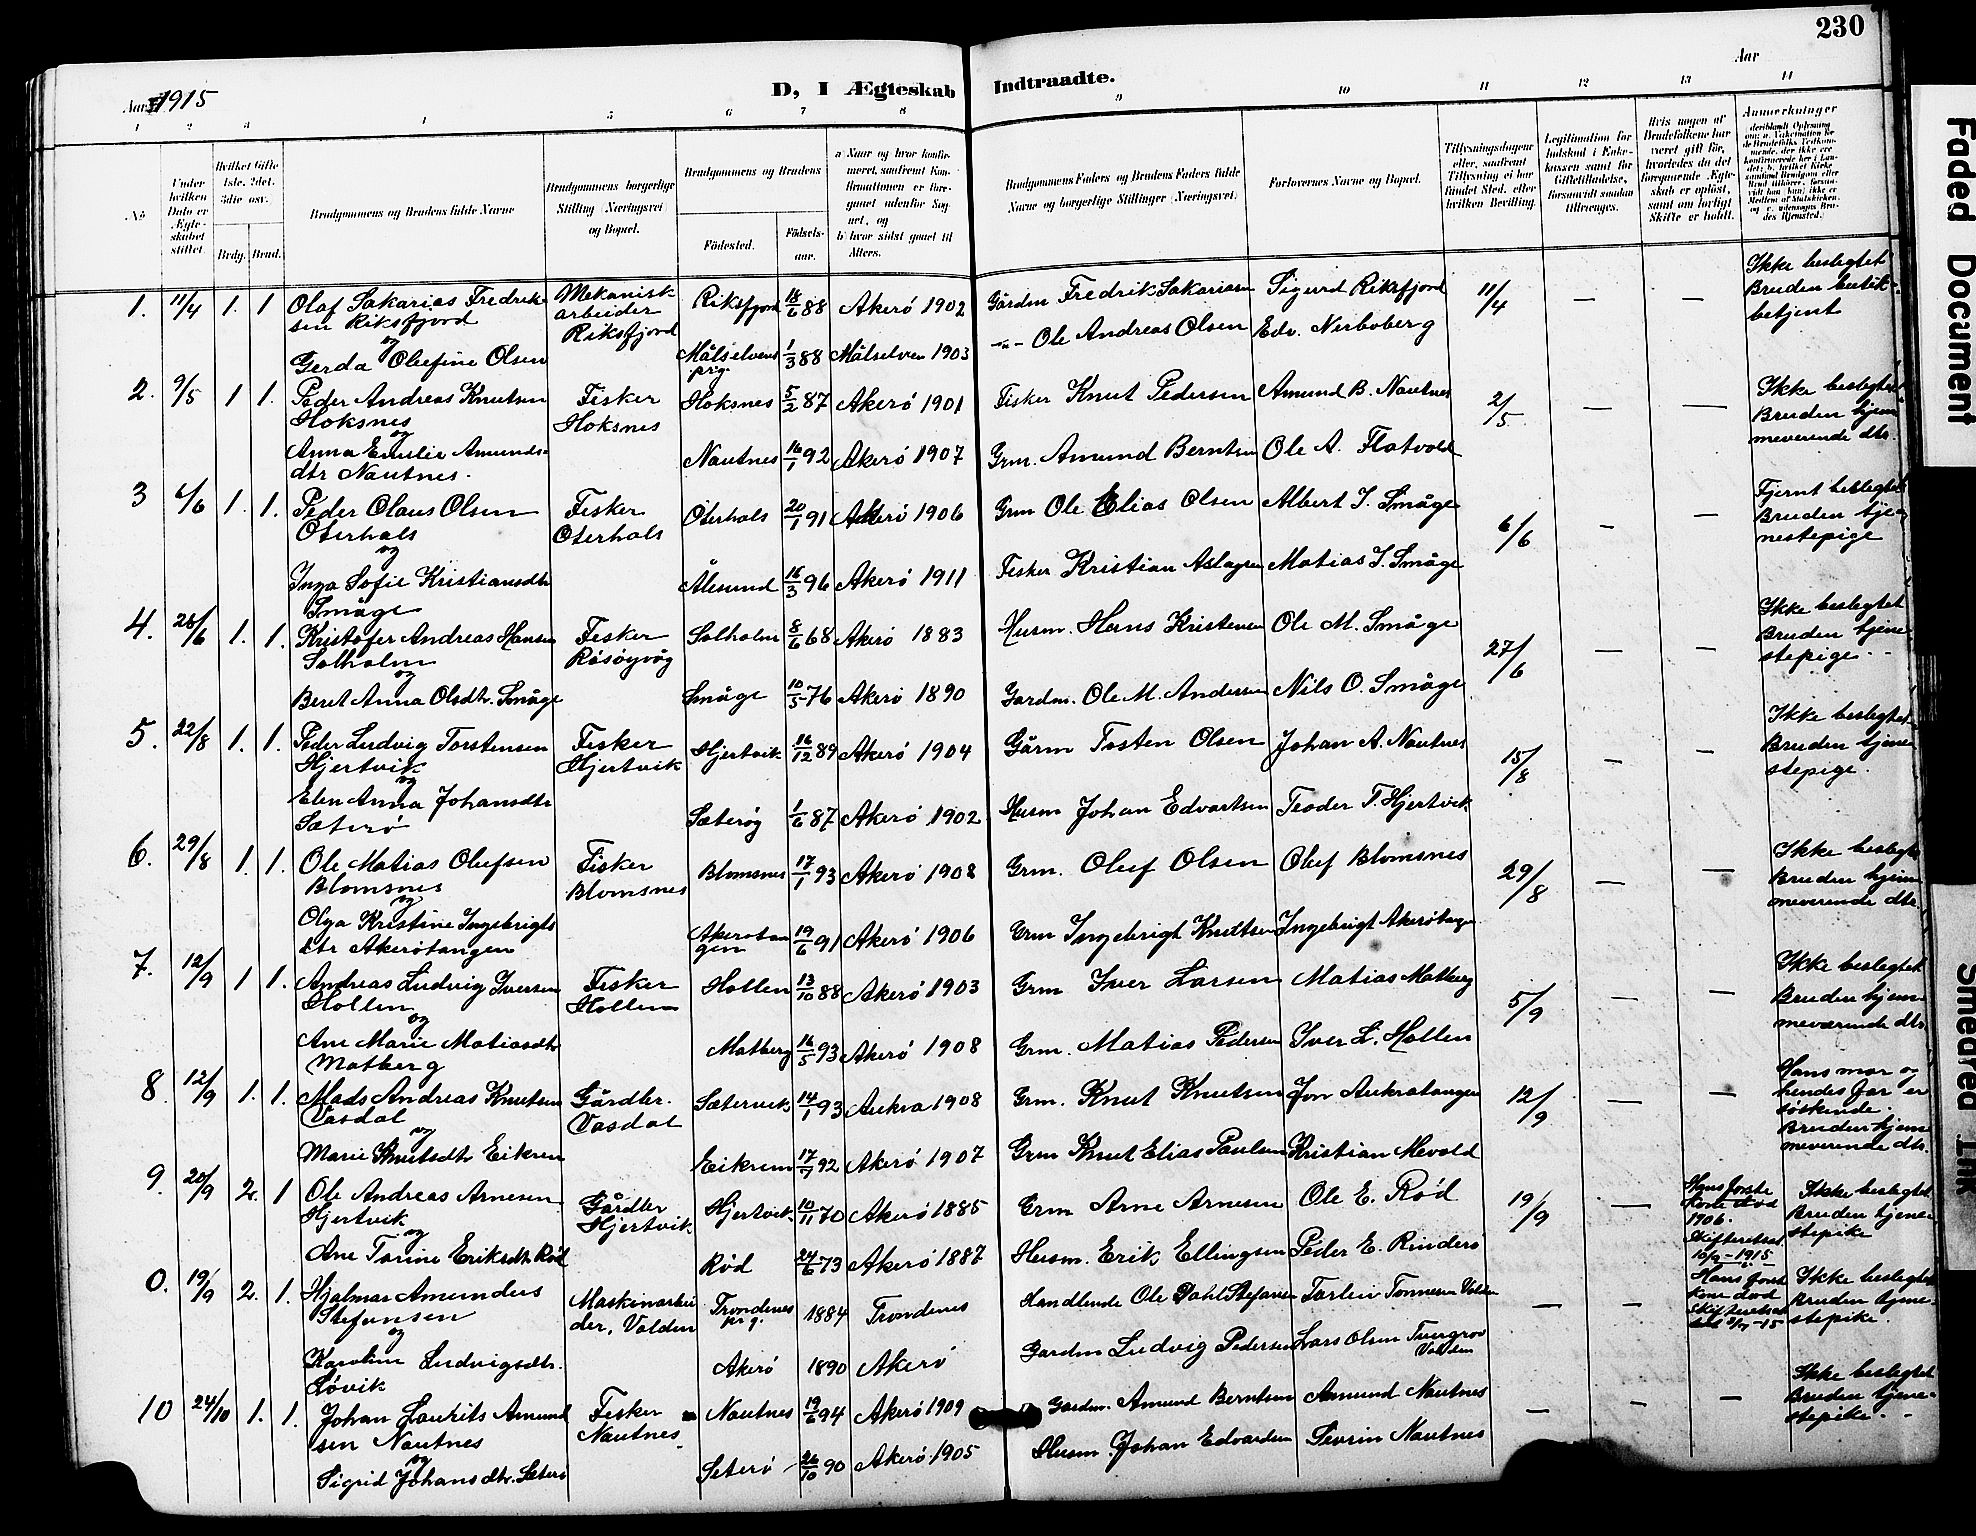 230
Aar 1915
D, I Ægteskab Indtraadte.
Aar
1 2 3 4 5 6 7 8 9 10 11 12 13 14
No
Under hvilken Dato er Ægteskabet stiftet.
Hvilket Gifte 1ste, 2det, 3die osv.
Brdg. Brud.
Brudgommens og Brudens fulde Navne
Brudgommens borgerlige Stilling (Næringsvei) og Bopæl.
Brudgommens og Brudens
Födested.
Födselsaar.
a) Naar og hvor konfirmeret, saafremt Konfirmationen er foregaaet udenfor Sognet, og
b) hvor sidst gaaet til Alters.
Brudgommens Faders og Brudens Faders fulde Navne og borgerlige Stillinger (Næringsvei).
Forlovernes Navne og Bopæl.
Tillysningsdagene eller, saafremt Tillysning ei har fundet Sted, efter hvilken Bevilling.
Legitimation for Indskud i Enkekassen samt for Giftetilladelse, forsaavidt saadan tiltrænges.
Hvis nogen af Brudefolkene har været gift før, hvorledes da det foregaaende Ægteskab er oplöst, samt om lovligt Skifte er holdt.
Anmerkninger
1. 11/4 1. 1 Olaf Sakarias Fredriksen Riksfjord Mekanisk arbeider Riksfjord Riksfjord 18/6 88 Akerö 1902 Gårdm Fredrik Sakariasen Sigurd Riksfjord 11/4 — — Ikke beslegtet Bruden butikbetjent
og
Gerda Olufine Olsen Målselvens prg. 1/3 88 Målselven 1903 -"- Ole Andreas Olsen Edv. Nerboberg
2. 9/5 1 1. Peder Andreas Knutsen Hoksnes Fisker Hoksnes Hoksnes 5/2 87 Akerö 1901 Fisker Knut Pedersen Amund B. Nautnes 2/5 — — Ikke beslegtet Bruden hjemmeverende dtr.
og
Anna Emilie Amundsdtr Nautnes. Nautnes 16/1 92 Akerö 1907 Grm. Amund Berntsen Ole A. Flatvold
3 6/6 1. 1. Peder Olaus Olsen Oterhals Fisker Oterhals Oterhals 20/1 91 Akerö 1906 Grm Ole Elias Olsen Albert I. Småge 6/6 - — Fjernt beslegtet Bruden tjenestepige
og
Inga Sofie Kristiansdtr Småge Ålesund 16/3 96 Akerö 1911 Fisker Kristian Aslagsen Matias I. Småge
4. 26/6 1. 1. Kristofer Andreas Hansen Solholm Fisker Rösöyvåg Solholm 8/6 68 Akerö 1883 Husm. Hans Kristensen Ole M. Småge 27/6 — — Ikke beslegtet Bruden tjenestepige.
og
Beret Anna Olsdtr. Småge Småge 10/5 76 Akerö 1890 Gardm. Ole M. Andersen Nils O. Småge
5. 22/8 1. 1. Peder Ludvig Torstensen Hjertvik Fisker Hjertvik Hjertvik 16/12 89 Akerö 1904 Gårm Tosten Olsen Johan A. Nautnes 15/8 — — Ikke beslegtet. Bruden tjenestepige.
og
Elen Anna Johansdtr Sæterö Sæteröy 1/6 87 Akerö 1902 Husm Johan Edvartsen Teoder T. Hjertvik
6. 29/8 1. 1. Ole Matias Olufsen Blomsnes Fisker Blomsnes Blomsnes 17/1 93 Akerö 1908 Grm. Oluf Olsen Oluf Blomsnes 29/8 — — Ikke beslegtet Bruden hjemmeverende dtr.
og
Olga Kristine Ingebrigtsdtr Akerötangen Akerötangen 19/6 91 Akerö 1906 Grm Ingebrigt Knudtsen Ingebrigt Akerötangen
7. 12/9 1 1. Andreas Ludvig Iversen Hollen Fisker Hollen Hollen 13/10 88 Akerö 1903 Grm Iver Larsen Matias Matberg 5/9 — — Ikke beslegtet Bruden hjemmeværende dtr.
og
Ane Marie Matiasdtr Matberg Matberg 16/5 93 Akerö 1908 Grm. Matias Pedersen Iver L. Hollen
8. 12/9 1. 1. Mads Andreas Knutsen Vasdal Gårdbr. Vasdal Sætervik 14/1 93 Aukra 1908 Grm. Knut Knutsen Jon Aukratangen 12/9 — — Hans mor og hendes far er söskende. Bruden hjemmeverende dtr.
og
Marie Knutsdtr Eikrem Eikrem 17/7 92 Akerö 1907 Grm Knut Elias Paulsen Kristian Mevold
9. 20/9 2. 1 Ole Andreas Arnesen Hjertvik Gårdbr Hjertvik Hjertvik. 10/11 70 Akerö 1885 Grm Arne Arnesen Ole E. Röd 19/9 — Hans forste kone död 1906. Skifteretsat. 10/9-1915 Ikke beslegtet. Bruden tjenestepike
og
Ane Torine Eriksdtr Röd Röd 24/6 73 Akerö 1887 Husm. Erik Ellingsen Peder E. Rinderö
0. 19/9 2. 1. Hjalmar Amundus Stefansen Maskinarbeider, Valden Trondenes prg. 1884 Trondenes Handlende Ole Dahl Stefansen Torlin Tonnesen Valden — — Hans forste kone död Ikke beslegtet Bruden tjenestepike.
og
Karoline Ludvigsdtr. Lövik Akerö 1890 Akerö Gardm Ludvig Pedersen Lars Olsen Valden
10 24/10 1. 1. Johan Laurits Amundsen Nautnes Fisker Nautnes Nautnes 19/6 94 Akerö 1909 Gardm. Amund Berntsen Amund Nautnes — - — Ikke beslegtet Bruden tjenestepike.
og
Sigrid Johansdtr. Seterö Seterö 26/10 90 Akerö 1905 Husm. Johan Edvardsen Sevrin Nautnes
Faded Document
Smeared Ink